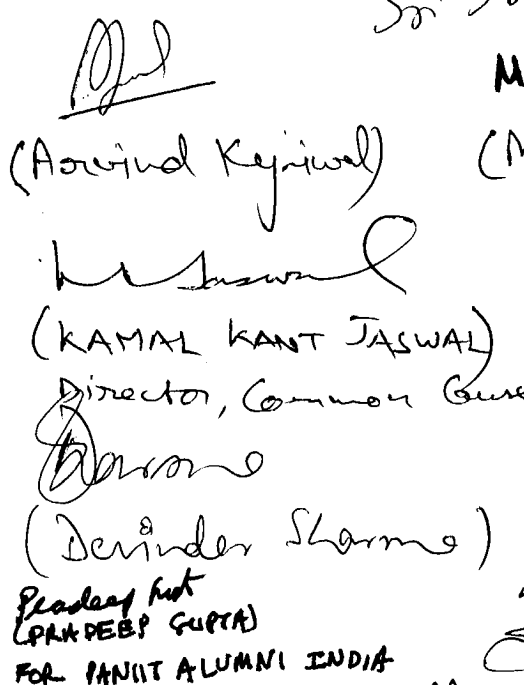 Sri
M
(Arvind Kejriwal)
(M
(KAMAL KANT JASWAL)
Director, Common Cause
(Devinder Sharma)
Pradeep
(PRADEEP GUPTA)
FOR PANIIT ALUMNI INDIA